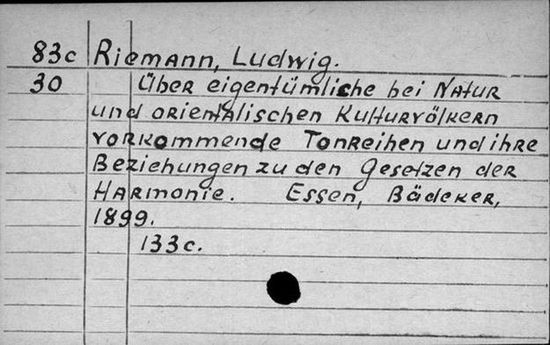 83c Riemann, Ludwig.
30 Über eigentümliche bei Natur
und orientalischen Kulturvölkern
vorkommende Tonreihen und ihre
Beziehungen zu den Gesetzen der
Harmonie. Essen, Bädeker,
1899.
133c.